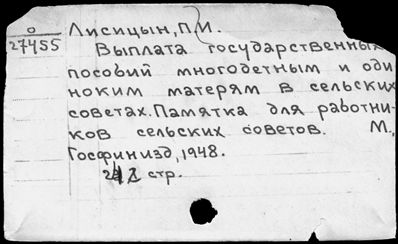 О
27455
Лисицын, П.И.
Выплата государственных
пособий многодетным и оди
ноким матерям в сельских
советах. Памятка для работни-
ков сельских советов. М.,
Госфиниздат, 1948.
стр.